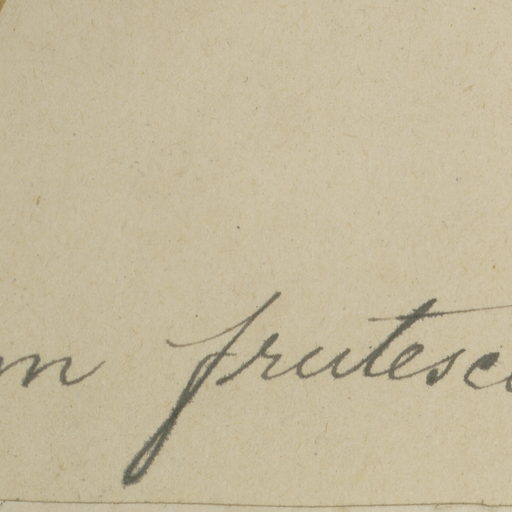 m frutesc